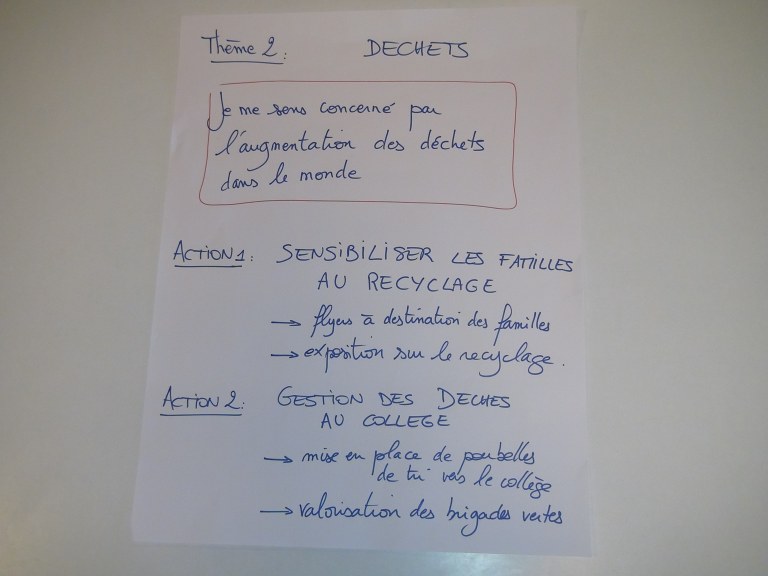 Thème 2: DECHETS
Je me sens concerné par
l'augmentation des déchets
dans le monde
ACTION 1: SENSIBILISER LES FAMILLES
AU RECYCLAGE
→ flyers à destination des familles
→ exposition sur le recyclage.
ACTION 2: GESTION DES DECHES
AU COLLEGE
→ mise en place de poubelles
de tri vers le collège
→ valorisation des brigades vertes